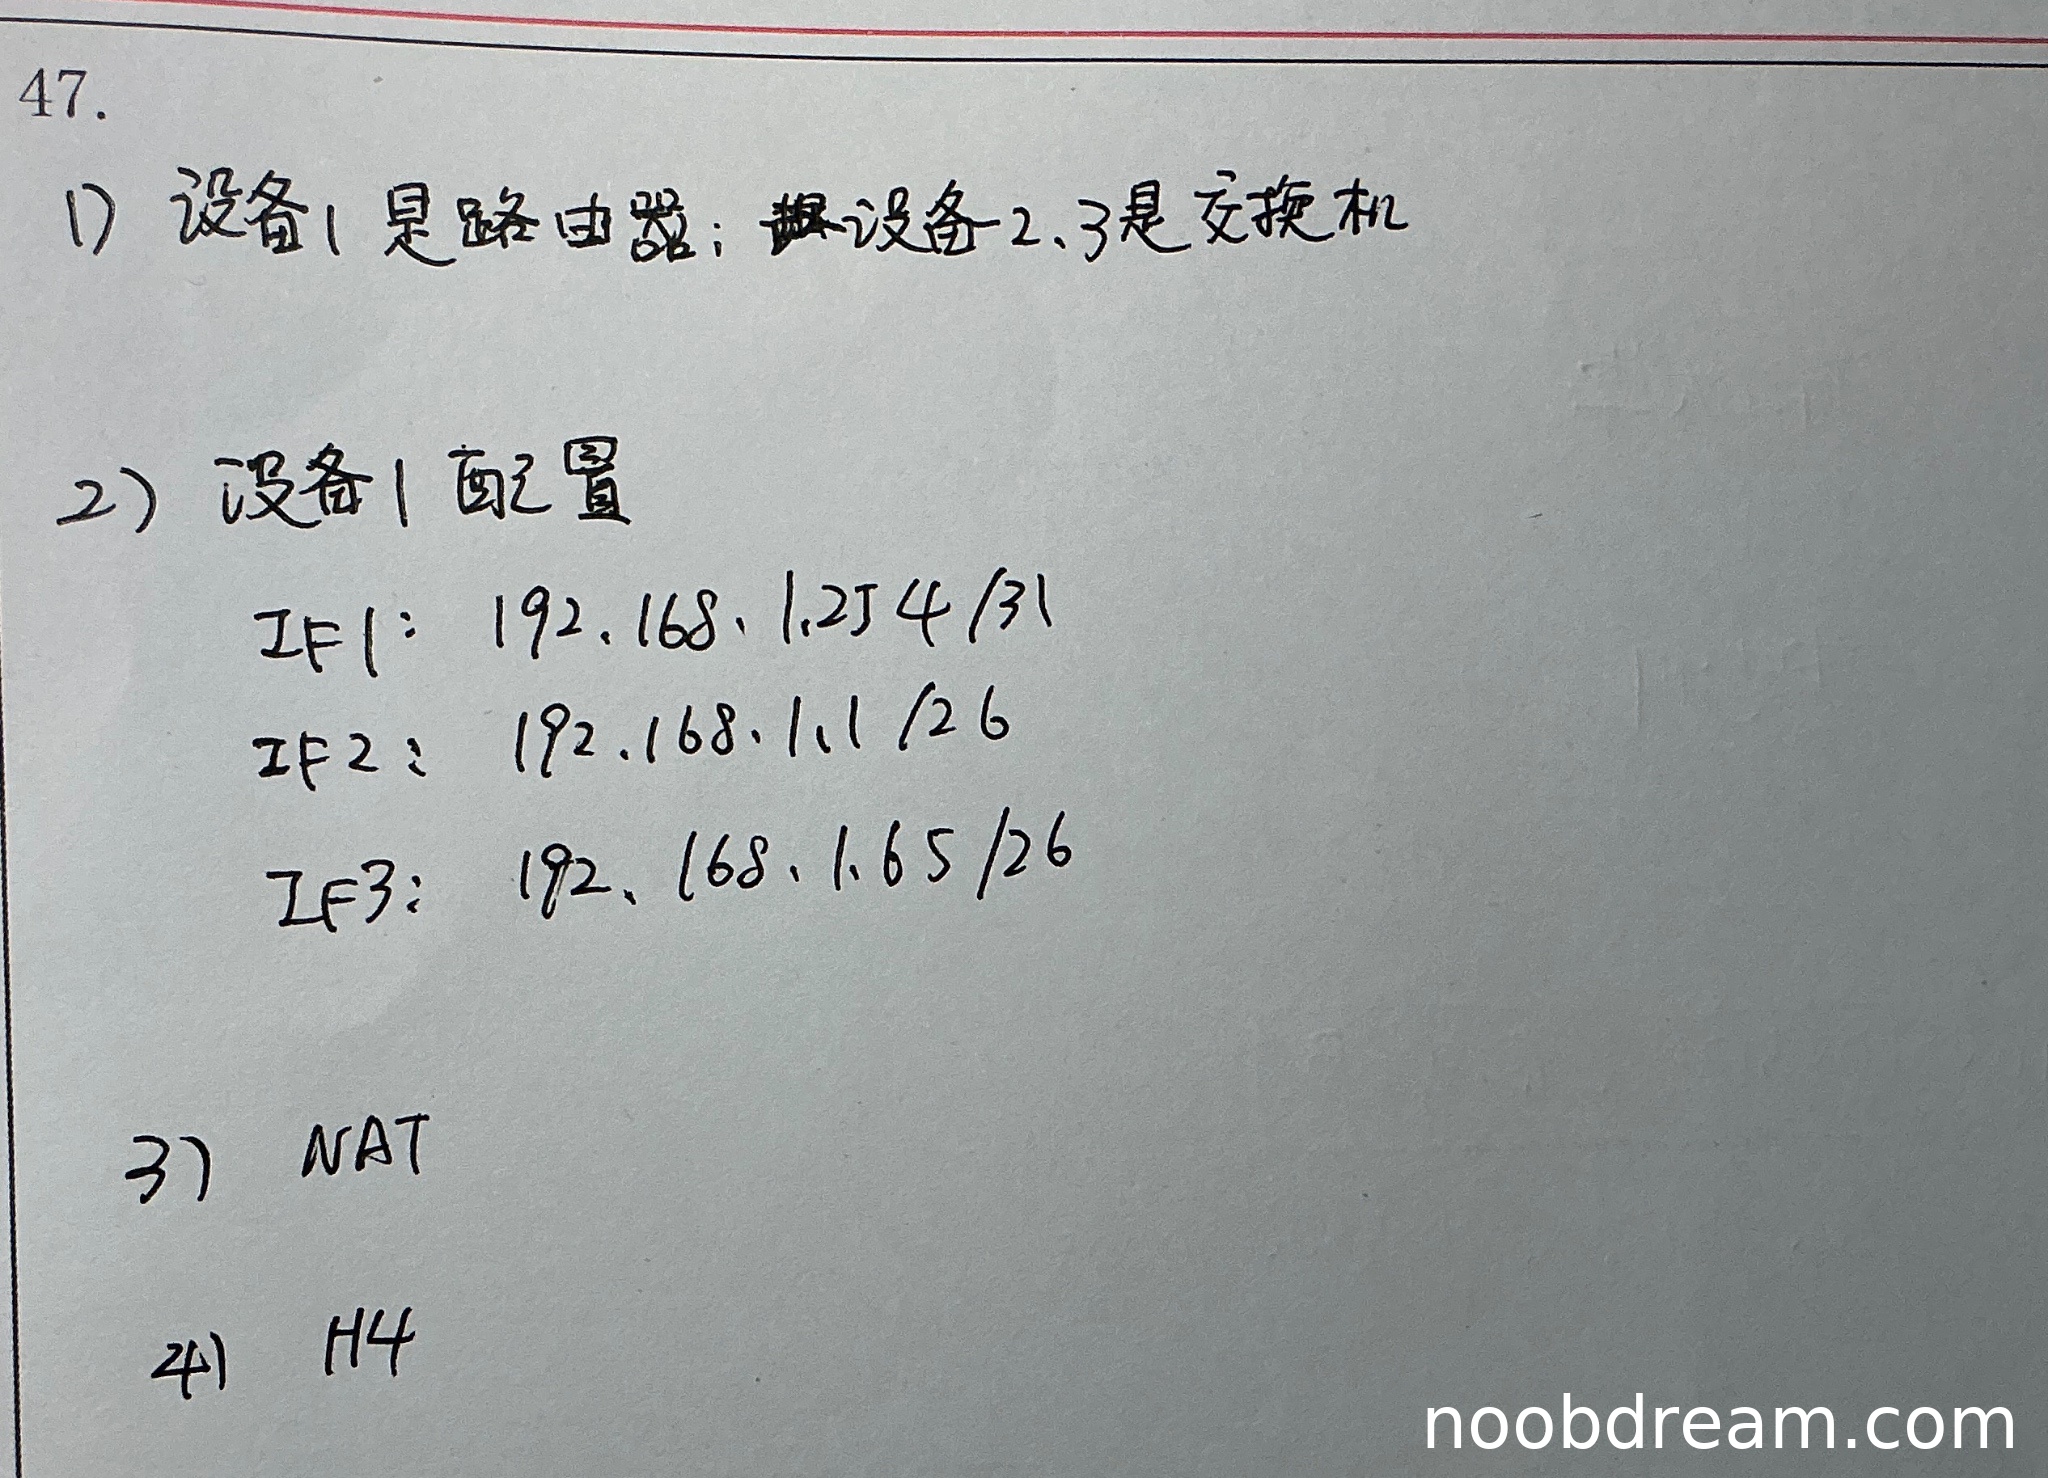 47.
1) 设备1是路由器; 设备2、3是交换机
2) 设备1配置
IF1: 192.168.1.254/31
IF2: 192.168.1.1/26
IF3: 192.168.1.65/26
3) NAT
4) H4
noobdream.com